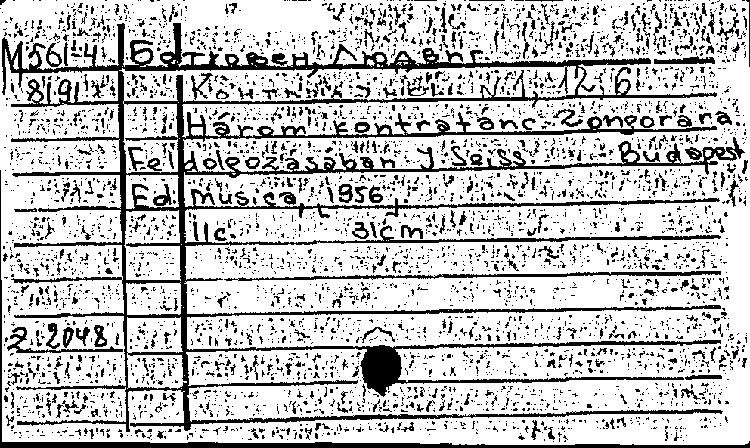 М561-4 Бетховен, Людвиг
8191 Контрданси. N 1, 12, 6
Három kontratánc. Zongorára.
Feldolgozásában J. Seiss. Budapest,
Ed. Musica, 1956,
11c. 31cm
2.2048